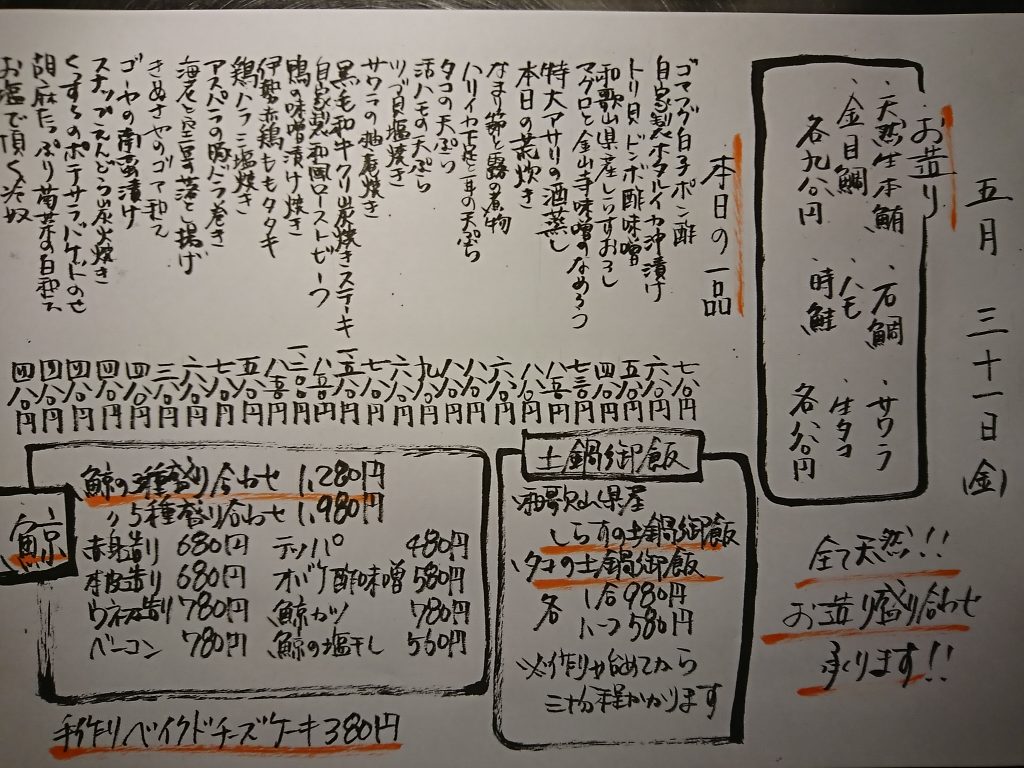 五月 三十一日(金)
お造り
・天然生本鮪 ・石鯛 ・サワラ
・金目鯛 ・ハモ ・生タコ
各九八〇円 時鮭 各八八〇円
全て天然!!
お造り盛り合わせ
承ります!!
本日の一品
ゴマフグ白子ポン酢 七八〇円
自家製ホタルイカ沖漬け 六八〇円
トリ貝ドンボ酢味噌 五八〇円
和歌山県産しらすおろし 四八〇円
マグロと金山寺味噌のなめろう 七三〇円
特大アサリの酒蒸し 八五〇円
本日の荒炊き 八八〇円
なまり節と蕗の煮物 六八〇円
ハリイカ下足と耳の天ぷら 八八〇円
タコの天ぷら 八八〇円
活ハモの天ぷら 九八〇円
ツブ貝塩焼き 六八〇円
サワラの柚庵焼き 七八〇円
黒毛和牛クリ炭焼きステーキ 一、五八〇円
自家製和風ローストビーフ 八五〇円
鴨の味噌漬け焼き 一、二〇〇円
伊勢赤鶏ももタタキ 八五〇円
鶏ハラミ塩焼き 五八〇円
アスパラの豚バラ巻き 七八〇円
海老と空豆の落とし揚げ 六八〇円
きぬさやのゴマ和え 三八〇円
ゴーヤの南蛮漬け 四八〇円
スナップえんどう炭火焼き 四八〇円
くつすらのポテサラバケットのせ 四八〇円
胡麻たっぷり菊菜の白和え 四八〇円
お塩で頂く冷奴 四八〇円
土鍋御飯
・和歌山県産
しらすの土鍋御飯
・タコの土鍋御飯
各 1合980円
ハーフ580円
※作り始めてから
三十分程かかります
鯨
鯨の3種盛り合わせ 1,280円
〃5種盛り合わせ 1,980円
赤身造り 680円 テッパ 480円
本皮造り 680円 オバケ酢味噌 580円
ウネス造り 780円 鯨カツ 780円
ベーコン 780円 鯨の塩干し 560円
手作りベイクドチーズケーキ380円